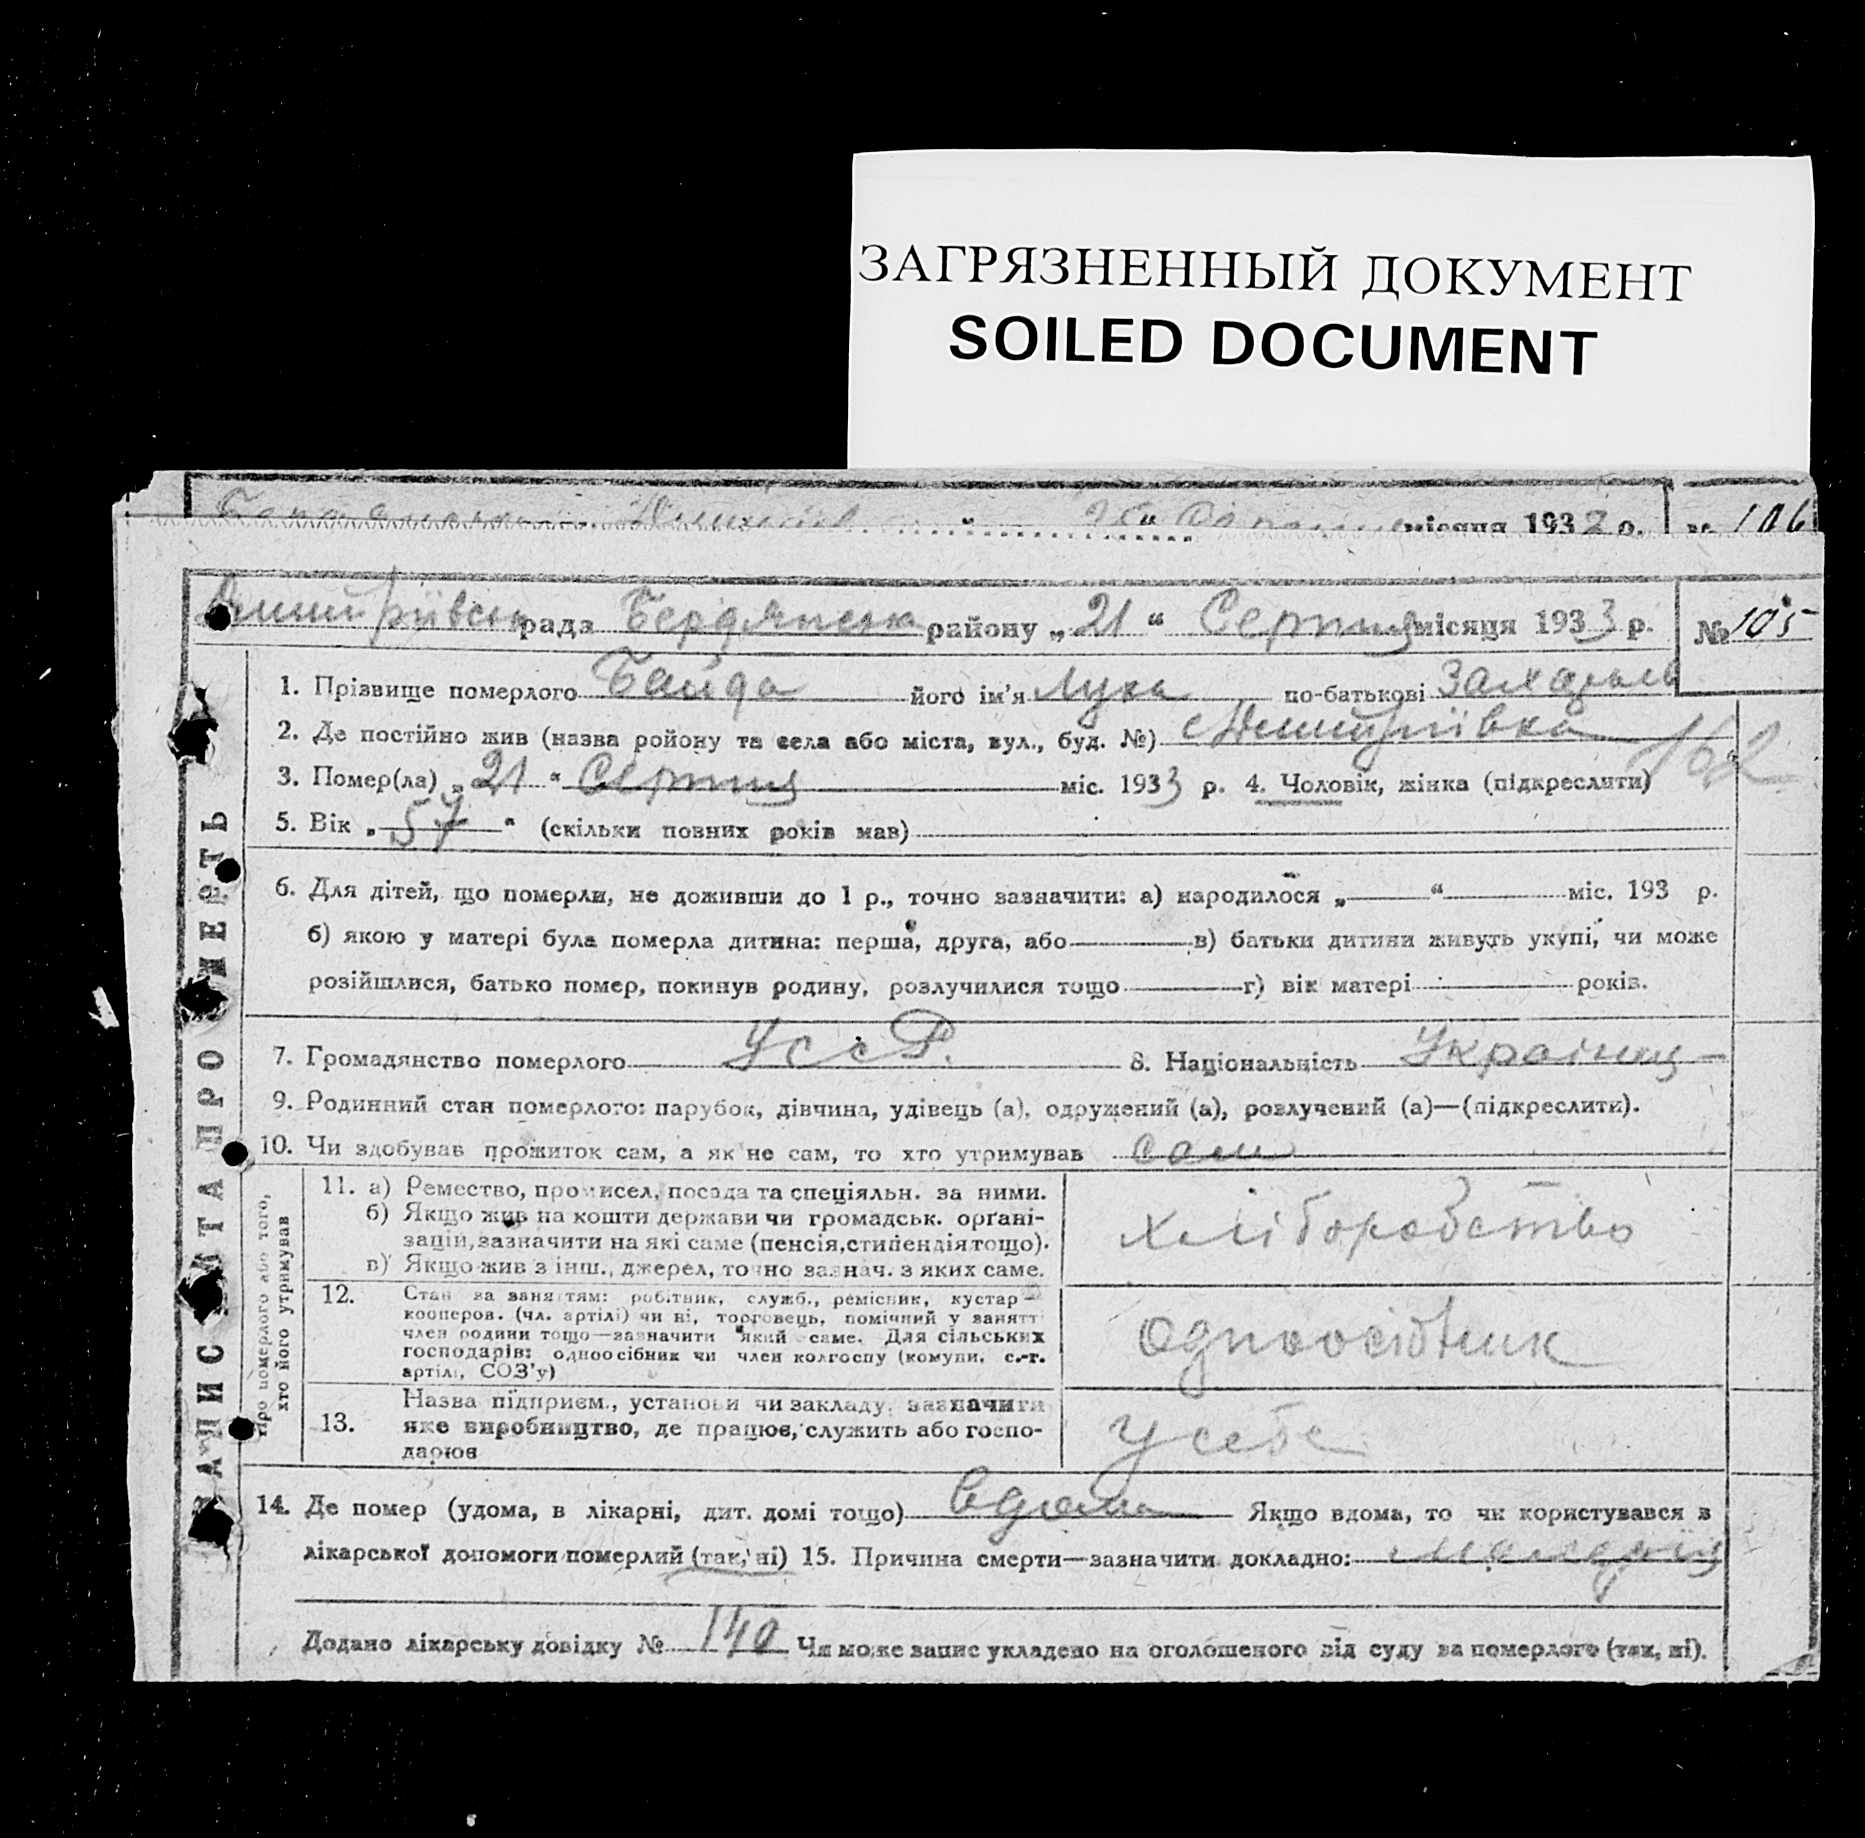 ЗАГРЯЗНЕННЫЙ ДОКУМЕНТ
SOILED DOCUMENT
місяця 1932 р. № 106
Дмитрівська рада Бердянськ району „21“ Серпня місяця 1933 р. № 105
1. Прізвище померлого Байда його ім'я Лука по-батькові Захаров
2. Де постійно жив (назва ройону та села або міста, вул., буд. №) с Дмитрівка
162
3. Помер(ла) „21“ Серпня міс. 1933 р. 4. Чоловік, жінка (підкреслити)
5. Вік „57“ (скільки повних років мав)
6. Для дітей, що померли, не доживши до 1 р., точно зазначити: а) народилося „ “ міс. 193 р.
б) якою у матері була померла дитина: перша, друга, або в) батьки дитини живуть укупі, чи може
розійшлися, батько помер, покинув родину, розлучилися тощо г) вік матері років.
7. Громадянство померлого УССР. 8. Національність Українец
9. Родинний стан померлого: парубок, дівчина, удівець (а), одружений (а), розлучений (а)—(підкреслити).
10. Чи здобував прожиток сам, а як не сам, то хто утримував сам
ЗАПИС АКТА ПРО СМЕРТЬ
Про померлого або того,
хто його утримував
11. а) Ремество, промисел, посада та спеціяльн. за ними.
б) Якщо жив на кошти держави чи громадськ. орґані-
зацій, зазначити на які саме (пенсія, стипендія тощо).
в) Якщо жив з інш., джерел, точно зазнач. з яких саме.
хліборобство
12. Стан за заняттям: робітник, служб., ремісник, кустар
кооперов. (чл. артілі) чи ні, торговець, помічний у занятт
член родини тощо—зазначити який саме. Для сільських
господарів: одноосібник чи член колгоспу (комуни, с.-г.
артілі, СОЗ'у)
Одноосібник
13. Назва підприєм., установи чи закладу, зазначити
яке виробництво, де працює, служить або госпо-
дарює
У себе
14. Де помер (удома, в лікарні, дит. домі тощо) Вдома Якщо вдома, то чи користувався з
лікарської допомоги померлий (так, ні) 15. Причина смерти—зазначити докладно: малярія
Додано лікарську довідку № 140 Чи може запис укладено на оголошеного від суду за померлого (так, ні).